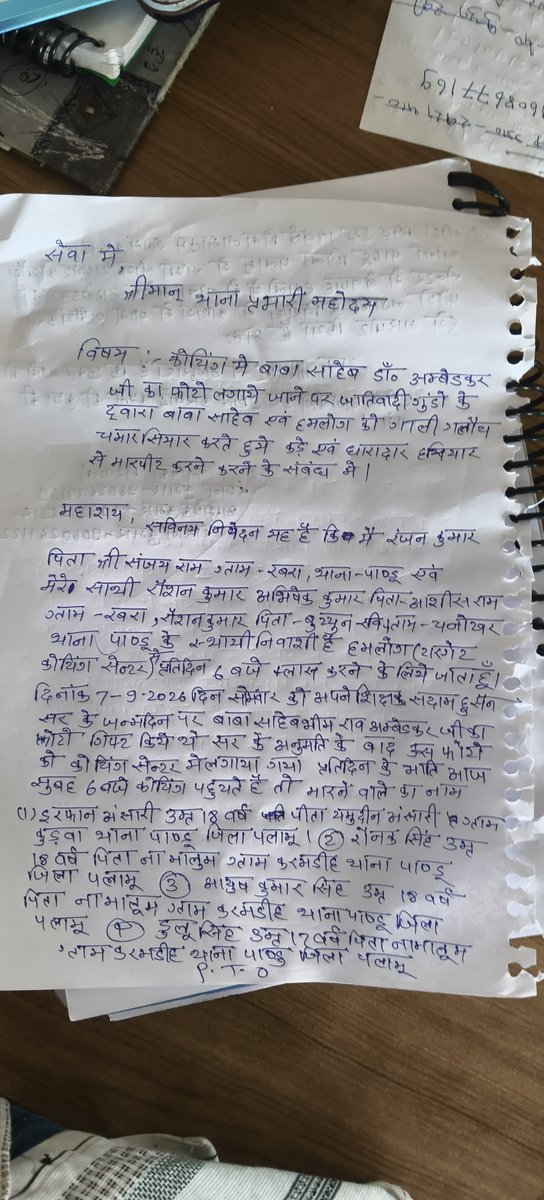 सेवा में,
श्रीमान् थाना प्रभारी महोदय
विषय :- कोचिंग में बाबा साहेब डॉ० अम्बेडकर
जी का फोटो लगाये जाने पर जातिवादी गुंडो के
द्वारा बाबा साहेब एवं हमलोग को गाली गलौच
चमार सियार करते हुये कड़े एवं धारादार हथियार
से मारपीट करने करने के संबंध में।
महाशय, सविनय निवेदन यह है कि मैं रंजन कुमार
पिता श्री संजय राम ग्राम - रबरा, थाना - पाण्डू एवं
मेरे साथी रौशन कुमार अभिषेक कुमार पिता - आशीस राम
ग्राम - रबरा, रौशन कुमार पिता - ग्राम -
थाना पाण्डू के स्थायी निवाशी है हमलोग (टारगेट
कोचिंग सेन्टर) प्रतिदिन 6 बजे क्लास करने के लिये जाता हूँ।
दिनांक 7-9-2026 दिन सोमवार को अपने शिक्षक सद्दाम हुसैन
सर के जन्मदिन पर बाबा साहेब भीम राव अम्बेडकर जी का
फोटो गिफ्ट किये थे सर के अनुमति के बाद उस फोटो
को कोचिंग सेन्टर में लगाया गया प्रतिदिन के भाँति आज
सुबह 6 बजे कोचिंग पहुंचते है तो मारने वाले का नाम
(1) इरफान अंसारी उम्र 18 वर्ष पीता अंसारी ग्राम
कुड़वा थाना पाण्डू जिला पलामू। (2) रौनक सिंह उम्र
18 वर्ष पिता ना मालुम ग्राम करमडीह थाना पाण्डू
जिला पलामू (3) आयुष कुमार सिंह उम्र 18 वर्ष
पिता नामालूम ग्राम करमडीह थाना पाण्डू जिला
पलामू (4) सिंह उम्र 17 वर्ष पिता नामालूम
ग्राम करमडीह थाना पाण्डु जिला पलामू
P. T. O